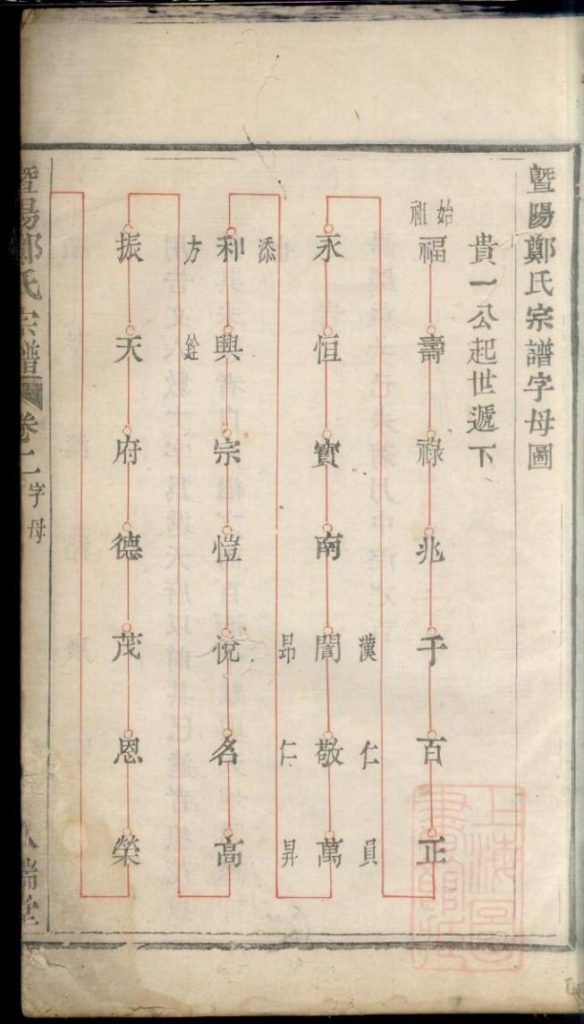 暨陽鄭氏宗譜字母圖
貴一公起世遞下
始祖
福壽祿兆千百正
漢仁員
永恒寶南誾敬萬
添昻仁昇
利興宗愷悅名高
方銓
振天府德茂恩榮
暨陽鄭氏宗譜
卷二
字母
瑞堂
上海圖書館藏